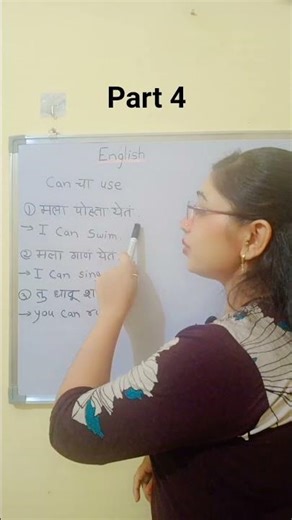 Part 4
English
Can चा use
① मला पोहता येतं
→ I Can Swim
② मला गाणं येत
→ I Can
③ तु धावू
→ you Can